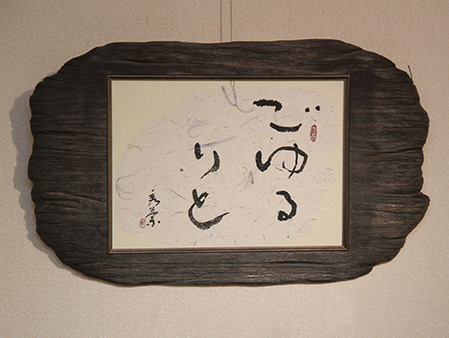 ごゆる
りと